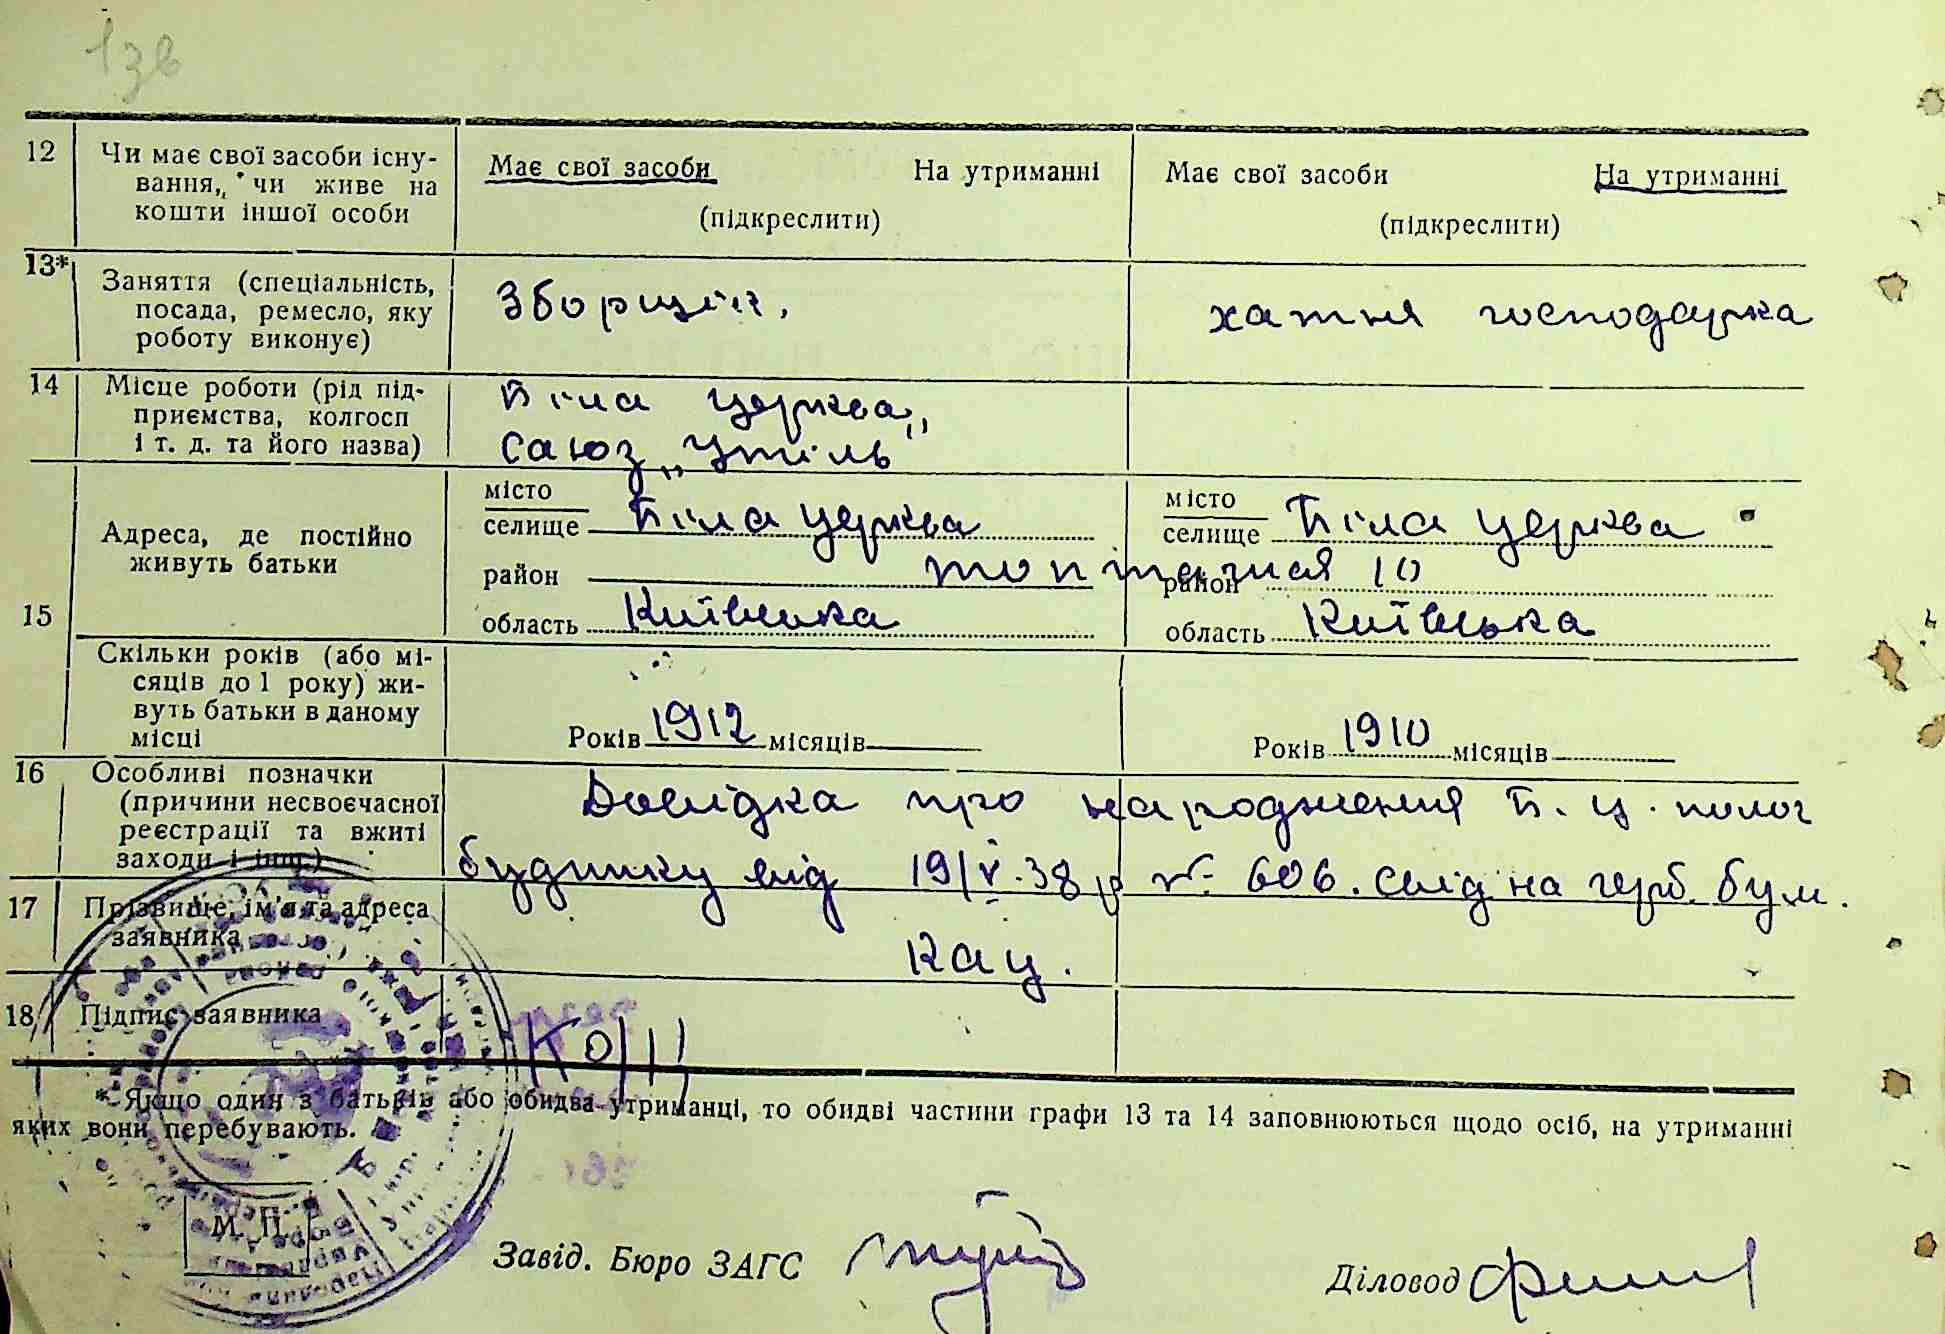 12 Чи має свої засоби існу- Має свої засоби На утриманні Має свої засоби На утриманні
вання, чи живе на
кошти іншої особи (підкреслити) (підкреслити)
13* Заняття (спеціальність, Зборщік. хатня господарка
посада, ремесло, яку
роботу виконує)
14 Місце роботи (рід під- Біла церква,
приємства, колгосп
і т. д. та його назва) Саюз „Утіль"
15 Адреса, де постійно живуть батьки
місто
селище Біла церква
район
область Київська
місто
селище Біла церква
район 10
область Київська
Скільки років (або мі-
сяців до 1 року) жи-
вуть батьки в даному
місці
Років 1912 місяців
Років 1910 місяців
16 Особливі позначки
(причини несвоєчасної
реєстрації та вжиті
заходи і інш.)
Довідка про народження Б. Ц. полог
будинку від 19/V. 38 р № 606. Слід на герб. бум.
17 Прізвище, ім'я та адреса
заявника Кац.
18 Підпис заявника Кац
* Якщо один з батьків або обидва утриманці, то обидві частини графи 13 та 14 заповнюються щодо осіб, на утриманні
яких вони перебувають.
М. П.
Завід. Бюро ЗАГС
Діловод